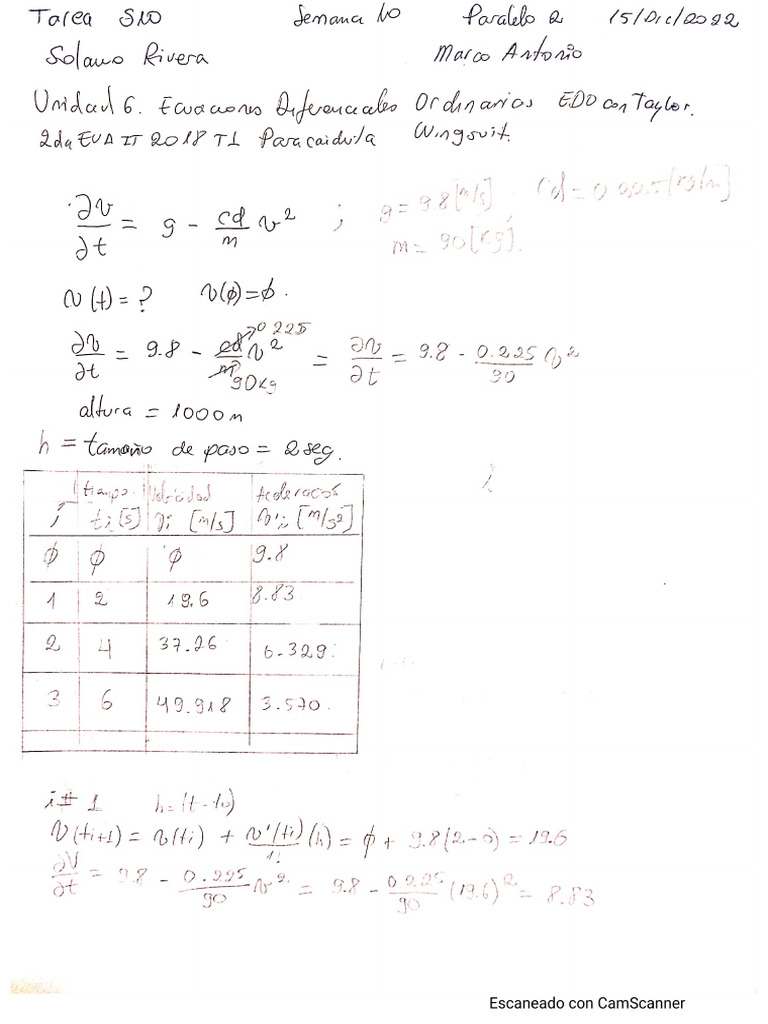 Tarea S10 Semana 10 Paralelo 2 15/Dic/2022
Solano Rivera Marco Antonio
Unidad 6. Ecuaciones Diferenciales Ordinarias EDO con Taylor.
2da EVA IT 2018 T1 Paracaidista Wingsuit.
∂v/∂t = g - cd/m v² ; g = 9.8 [m/s] cd = 0.225 [kg/m]
m = 90 [kg].
v(t) = ? v(ϕ) = ϕ.
∂v/∂t = 9.8 - cd→0.225/m 90kg v² = ∂v/∂t = 9.8 - 0.225/90 v²
altura = 1000m
h = tamaño de paso = 2 seg.
i tiempo ti [s] Velocidad vi [m/s] Aceleración v'i [m/s²]
ϕ ϕ ϕ 9.8
1 2 19.6 8.83
2 4 37.26 6.329
3 6 49.918 3.570
i# 1 h = (t - t0)
v(ti+1) = v(ti) + v'(ti)/1! (h) = ϕ + 9.8(2-0) = 19.6
∂v/∂t = 9.8 - 0.225/90 v² = 9.8 - 0.225/90 (19.6)² = 8.83
Escaneado con CamScanner